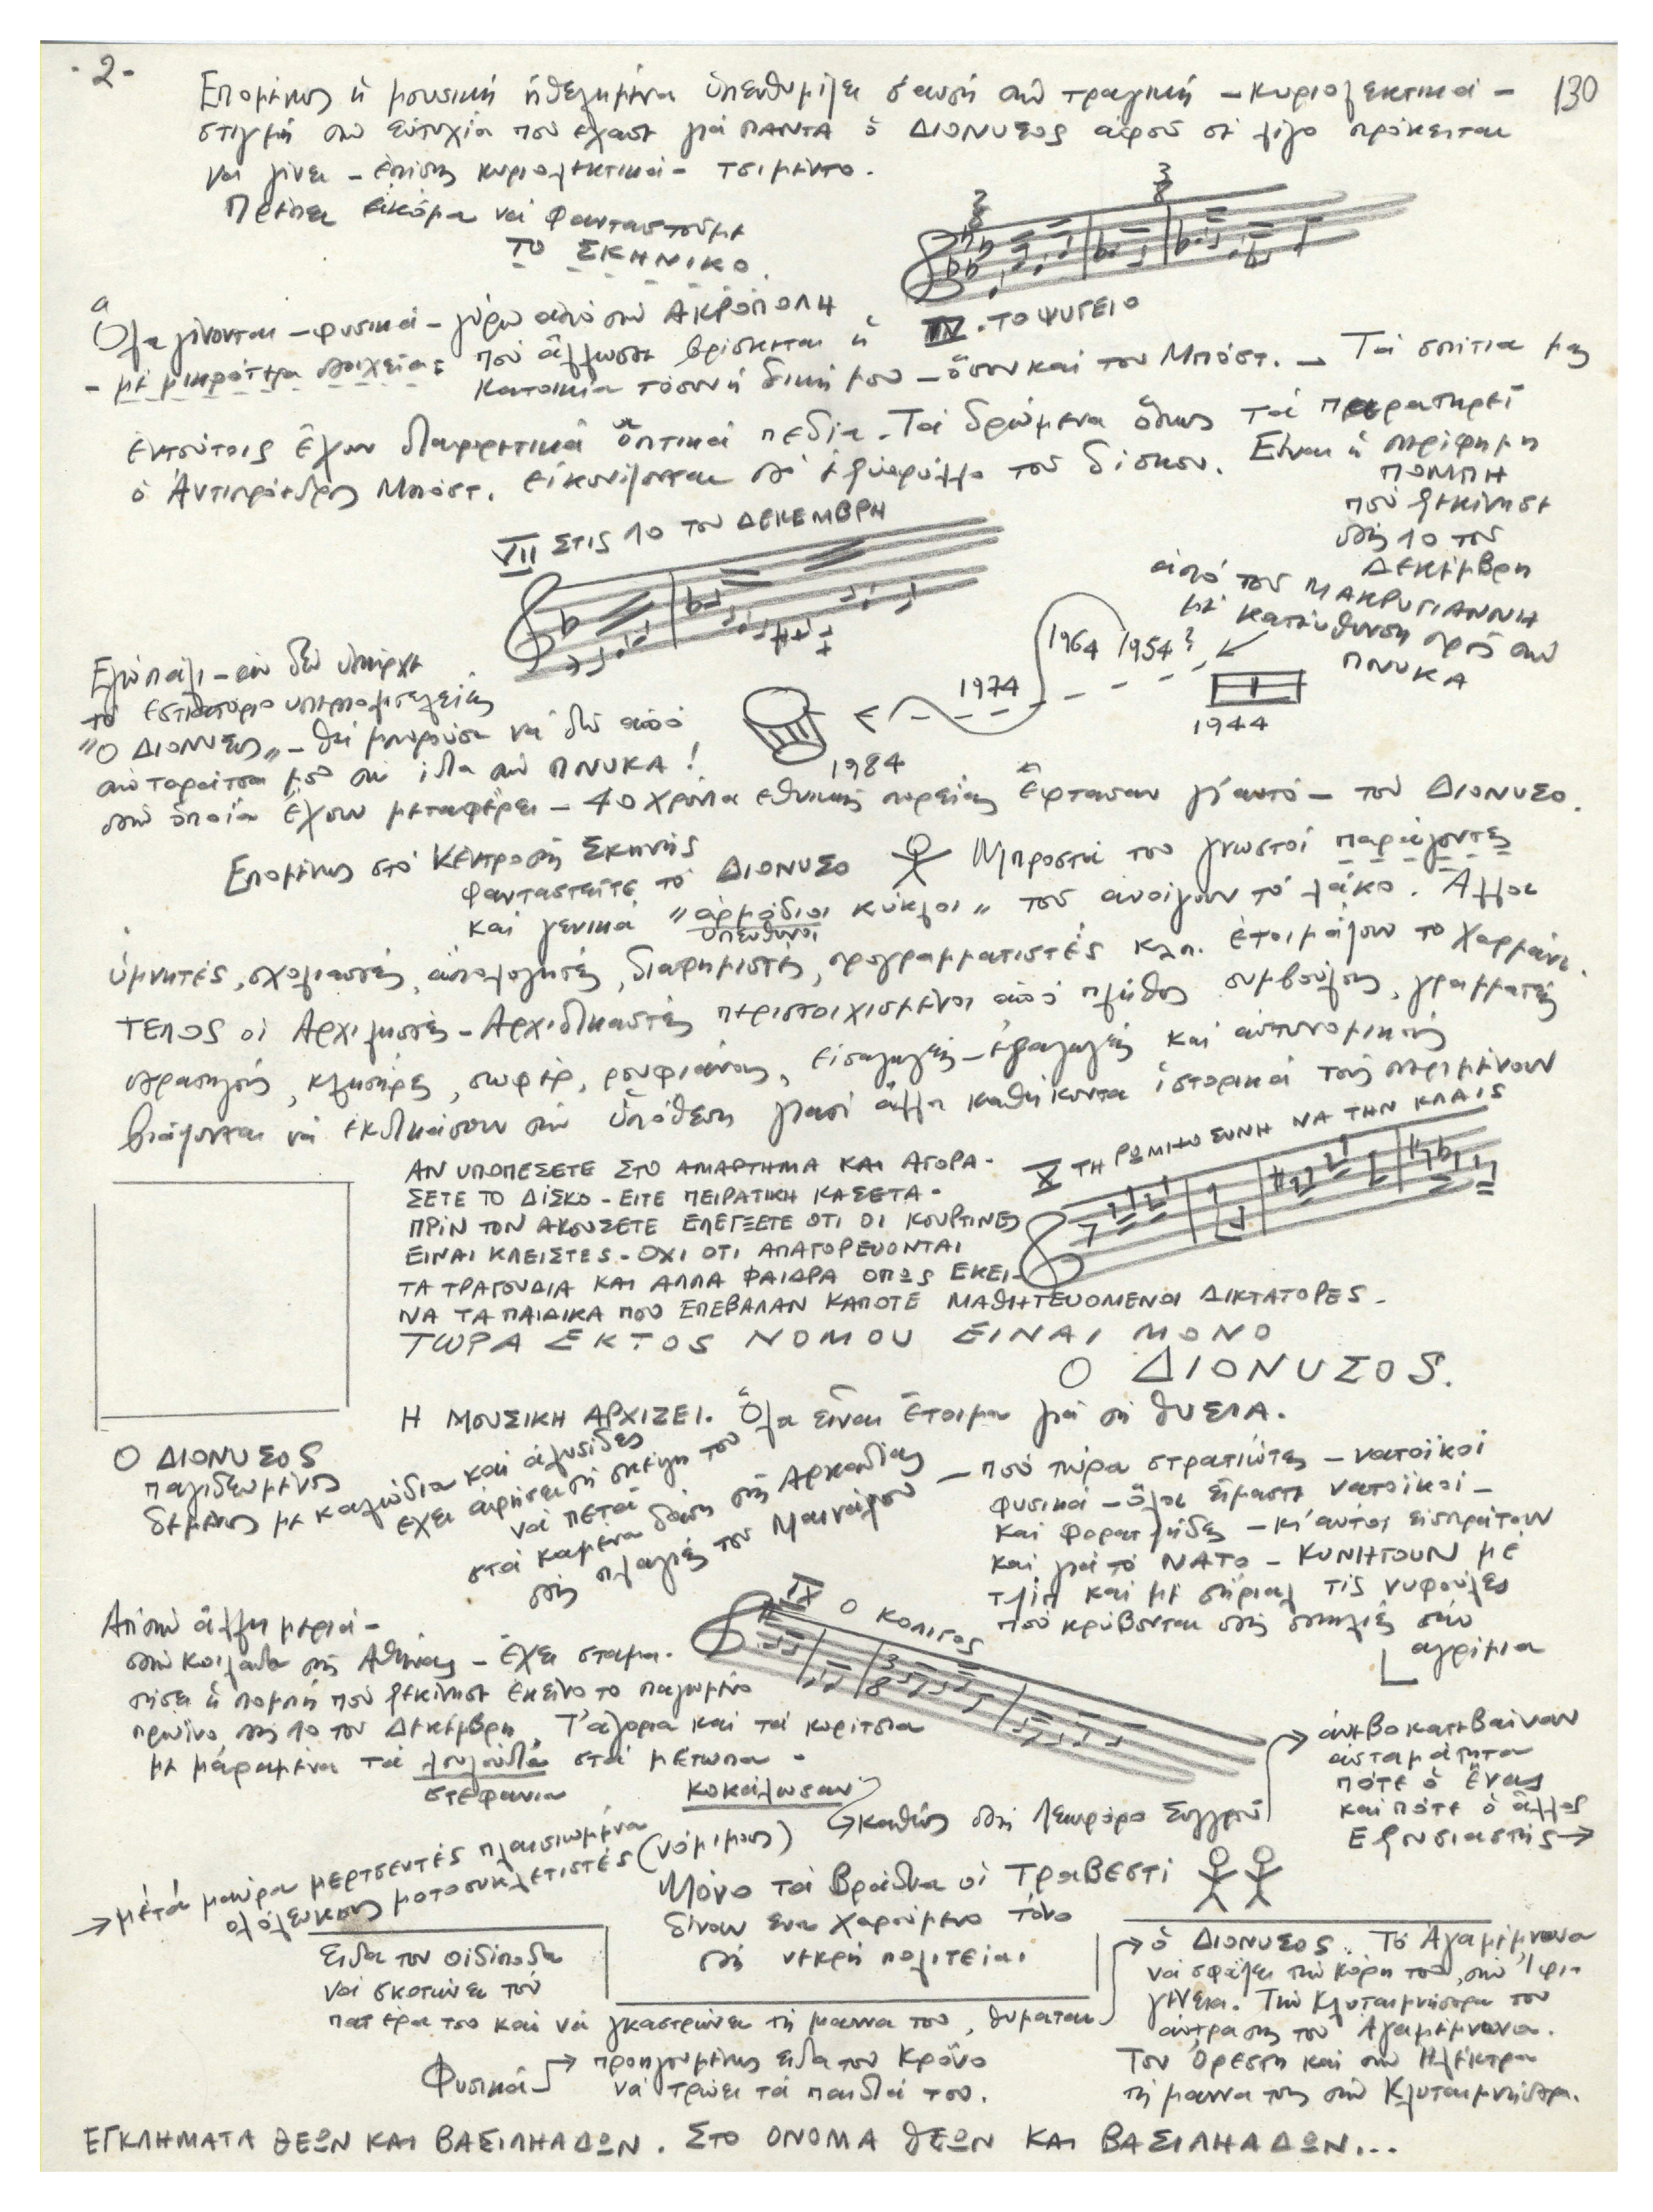 -2-
130
Επομένως ἡ μουσική ἠθελημένα ὑπενθυμίζει σ'αυτή τήν τραγική - κυριολεκτικά -
στιγμή τήν εὐτυχία πού έχασε γιά ΠΑΝΤΑ ὁ ΔΙΟΝΥΣΟς ἀφού σέ λίγο πρόκειται
να γίνει - ἐπίσης κυριολεκτικά - τσιμέντο.
Πρέπει ἀκόμα νά φανταστοῦμε
ΤΟ ΣΚΗΝΙΚΟ.
2/8 3/8
IV. ΤΟ ΨΥΓΕΙΟ
Ὅλα γίνονται - φυσικά - γύρω από τήν ΑΚΡΟΠΟΛΗ
- μέ μικρότερα στοιχεία: πού ἄλλωστε βρίσκεται ἡ
κατοικία τόσον ἡ δική μου - ὅσον καί του Μπόστ. - Τά σπίτια μας
ἐντούτοις ἔχουν διαφορετικά ὀπτικά πεδία. Τά δρώμενα ὅπως τά παρατηρεῖ
ὁ Ἀντιπρόεδρος Μπόστ. εἰκονίζονται στό ἐξώφυλλο τοῦ δίσκου. Εἶναι ἡ περίφημη
ΠΟΜΠΗ
πού ξεκίνησε
στίς 10 τοῦ
Δεκέμβρη
ἀπό τοῦ ΜΑΚΡΥΓΙΑΝΝΗ
μέ κατεύθυνση πρός τήν
ΠΝΥΚΑ
VII ΣΤΙς 10 ΤΟΥ ΔΕΚΕΜΒΡΗ
1964 1954?
1974
1944
1984
Εγώ πάλι - ἄν δέν ὑπήρχε
τό εστιατόριο υπερπολυτελείας
"Ο ΔΙΟΝΥΣΟς" - θά μπορούσα νά δῶ ἀπό
τήν ταράτσα μου τήν ίδια τήν ΠΝΥΚΑ!
στήν ὁποία ἔχουν μεταφέρει - 40 χρόνια εθνικής πορείας ἔφτασαν γι'αυτό - τόν ΔΙΟΝΥΣΟ.
Επομένως στό Κέντρο της Σκηνής
φανταστεῖτε τό ΔΙΟΝΥΣΟ Μπροστά του γνωστοί παράγοντες
και γενικά "αρμόδιοι κύκλοι" τοῦ ανοίγουν τό λάκο. Άλλοι
υπεύθυνοι
ὑμνητές, σχολιαστές, ἀπολογητές, διαφημιστές, προγραμματιστές κλπ. ἑτοιμάζουν το χαρμάνι.
ΤΕΛΟς οἱ Αρχιληστές - Αρχιδικαστές περιστοιχισμένοι ἀπό πλῆθος συμβούλους, γραμματείς
στρατηγούς, κλητήρες, σωφέρ, ρουφιάνους, εἰσαγωγεῖς - ἐξαγωγεῖς καί αστυνομικούς
βιάζονται νά ἐκδικάσουν τήν ὑπόθεση γιατί ἄλλα καθήκοντα ἱστορικά τούς περιμένουν
Χ ΤΗ ΡΩΜΙΟΣΥΝΗ ΝΑ ΤΗΝ ΚΛΑΙΣ
ΑΝ ΥΠΟΠΕΣΕΤΕ ΣΤΟ ΑΜΑΡΤΗΜΑ ΚΑΙ ΑΓΟΡΑ-
ΣΕΤΕ ΤΟ ΔΙΣΚΟ - ΕΙΤΕ ΠΕΙΡΑΤΙΚΗ ΚΑΣΕΤΑ -
ΠΡΙΝ ΤΟΝ ΑΚΟΥΣΕΤΕ ΕΛΕΓΞΕΤΕ ΟΤΙ ΟΙ ΚΟΥΡΤΙΝΕς
ΕΙΝΑΙ ΚΛΕΙΣΤΕς - ΟΧΙ ΟΤΙ ΑΠΑΓΟΡΕΥΟΝΤΑΙ
ΤΑ ΤΡΑΓΟΥΔΙΑ ΚΑΙ ΑΛΛΑ ΦΑΙΔΡΑ ΟΠΩς ΕΚΕΙ-
ΝΑ ΤΑ ΠΑΙΔΙΚΑ ΠΟΥ ΕΠΕΒΑΛΑΝ ΚΑΠΟΤΕ ΜΑΘΗΤΕΥΟΜΕΝΟΙ ΔΙΚΤΑΤΟΡΕς.
ΤΩΡΑ ΕΚΤΟς ΝΟΜΟΥ ΕΙΝΑΙ ΜΟΝΟ
Ο ΔΙΟΝΥΣΟς.
Η ΜΟΥΣΙΚΗ ΑΡΧΙΖΕΙ. Ὅλα εἶναι ἕτοιμα γιά τή ΘΥΕΛΑ.
Ο ΔΙΟΝΥΣΟς
παγιδευμένος
δεμένος με καλώδια και ἁλυσίδες
έχει ἀφήσει τή σκέψη του
νά πετά
στά καμένα δάση τῆς Αρκαδίας
στίς πλαγιές του Μαινάλου
- πού τώρα στρατιώτες - νατοϊκοί
φυσικά - ὅλοι εἴμαστε νατοϊκοί -
και φορατζήδες - κι'αὐτοί εἰσπράτουν
καί γιά τό ΝΑΤΟ - ΚΥΝΗΓΟΥΝ μέ
τζίπ και μέ σήριαλ τίς νυφούλες
πού κρύβονται στίς σπηλιές σάν
αγρίμια
ΙΧ Ο ΚΟΛΙΓΟς
3/8
Από τήν ἄλλη μεριά -
στήν κοιλάδα τῆς Αθήνας - ἔχει σταμα-
τήσει ἡ πομπή πού ξεκίνησε ἐκεῖνο το παγωμένο
πρωϊνό, στίς 10 τοῦ Δεκέμβρη. Τ'αγόρια καί τά κορίτσια
με μαραμένα τά λουλούδια στά μέτωπα -
στεφάνια
κοκάλωσαν
καθώς στή Λεωφόρο Συγγροῦ
ἀνεβοκατεβαίναν
ἀσταμάτητα
πότε ὁ ἕνας
καί πότε ὁ ἄλλος
Εξουσιαστής →
→ μέ τά μαύρα μερτσεντές πλαισιωμένα
ολόλευκους μοτοσυκλετιστές (νόμιμους)
Μόνο τά βράδυα οἱ Τραβεστί
δίνουν ένα χαρούμενο τόνο
στή νεκρή πολιτεία.
Ειδα τον Οιδίποδα
νά σκοτώνει τόν
πατέρα του και νά γκαστρώνει τή μαννα του, θυμαται
ὁ ΔΙΟΝΥΣΟς. Τό Ἀγαμέμνονα
νά σφάζει τήν κόρη του, τήν Ἰφι-
γένεια. Τήν Κλυταιμνήστρα τον
άντρα της τον Ἀγαμέμνονα.
Τον Ὀρέστη και τήν Ηλέκτρα
τή μαννα της τήν Κλυταιμνήστρα.
Φυσικά → προηγουμένως ειδα τον Κρόνο
νά τρώει τά παιδιά του.
ΕΓΚΛΗΜΑΤΑ ΘΕΩΝ ΚΑΙ ΒΑΣΙΛΗΑΔΩΝ. ΣΤΟ ΟΝΟΜΑ ΘΕΩΝ ΚΑΙ ΒΑΣΙΛΗΑΔΩΝ...